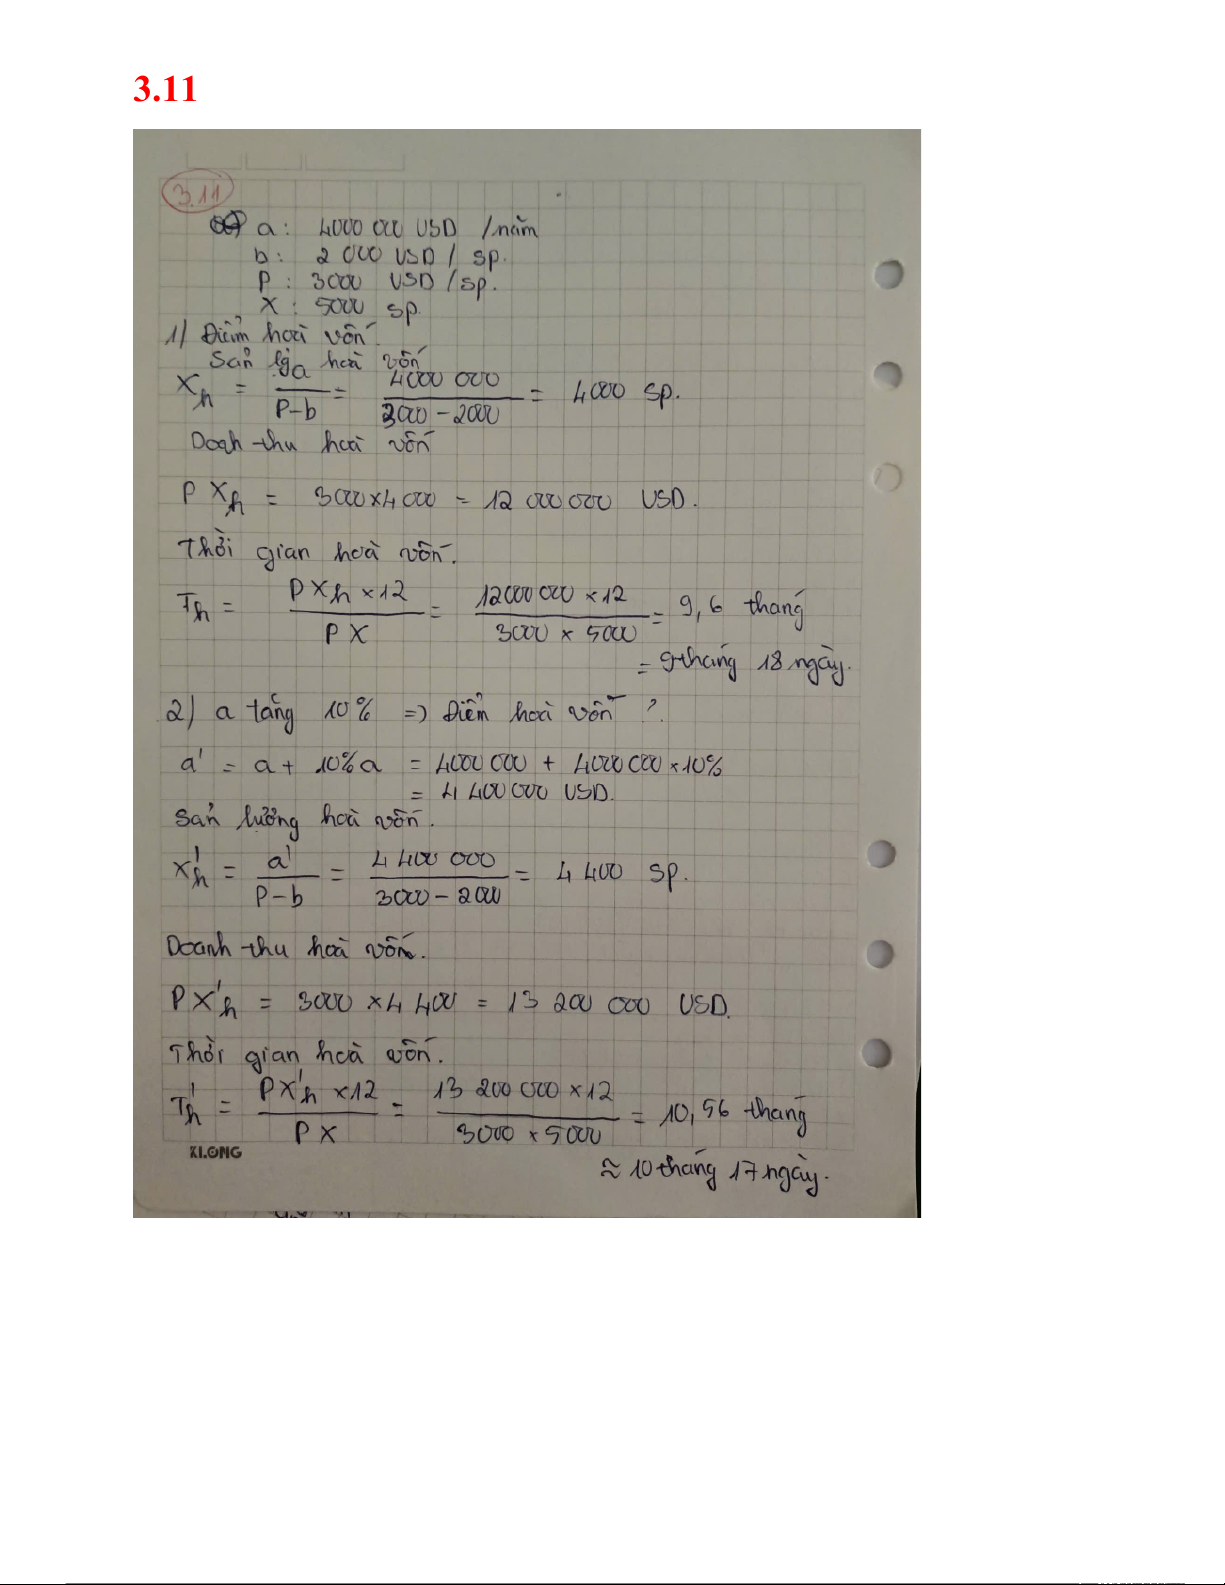 3.11
3.11
a: 4000 000 USD /năm
b: 2 000 USD / sp.
P: 3000 USD / sp.
X: 5000 sp.
1) Điểm hoà vốn.
Sản lg hoà vốn
Xh = a / (P-b) = 4000 000 / (3000 - 2000) = 4000 sp.
Doanh thu hoà vốn
P Xh = 3000 x 4 000 = 12 000 000 USD.
Thời gian hoà vốn.
Th = P Xh x 12 / P X = 12000 000 x 12 / 3000 x 5000 = 9,6 tháng
= 9 tháng 18 ngày.
2) a tăng 10% => Điểm hoà vốn ?
a' = a + 10% a = 4000 000 + 4000 000 x 10%
= 4 400 000 USD.
Sản lượng hoà vốn.
X'h = a' / (P-b) = 4 400 000 / (3000 - 2000) = 4 400 sp.
Doanh thu hoà vốn.
P X'h = 3000 x 4 400 = 13 200 000 USD.
Thời gian hoà vốn.
T'h = P X'h x 12 / P X = 13 200 000 x 12 / 3000 x 5000 = 10,56 tháng
KLONG
≈ 10 tháng 17 ngày.